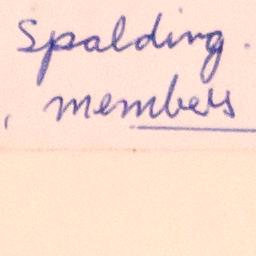 Spalding.
, members